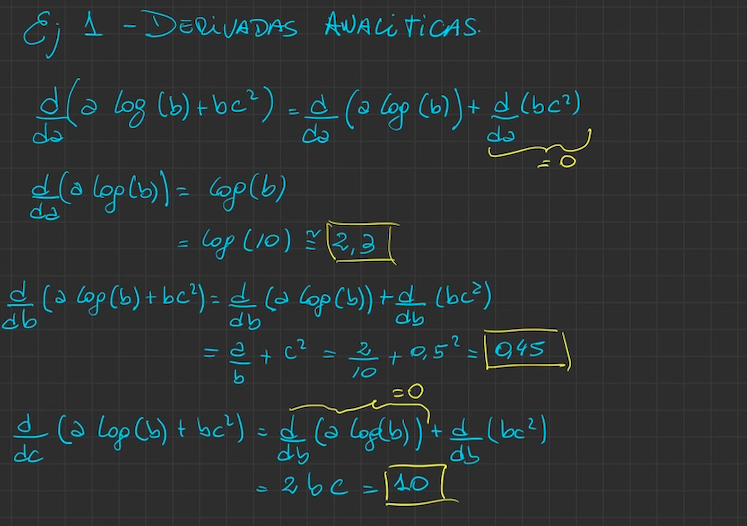 Ej 1 - DERIVADAS ANALITICAS.
d/da (a log (b) + bc²) = d/da (a log (b)) + d/da (bc²)
= 0
d/da (a log(b)) = log(b)
= log (10) ≅ 2,3
d/db (a log(b) + bc²) = d/db (a log(b)) + d/db (bc²)
= a/b + c² = 2/10 + 0,5² = 0,45
= 0
d/dc (a log(b) + bc²) = d/db (a log(b)) + d/db (bc²)
= 2bc = 10